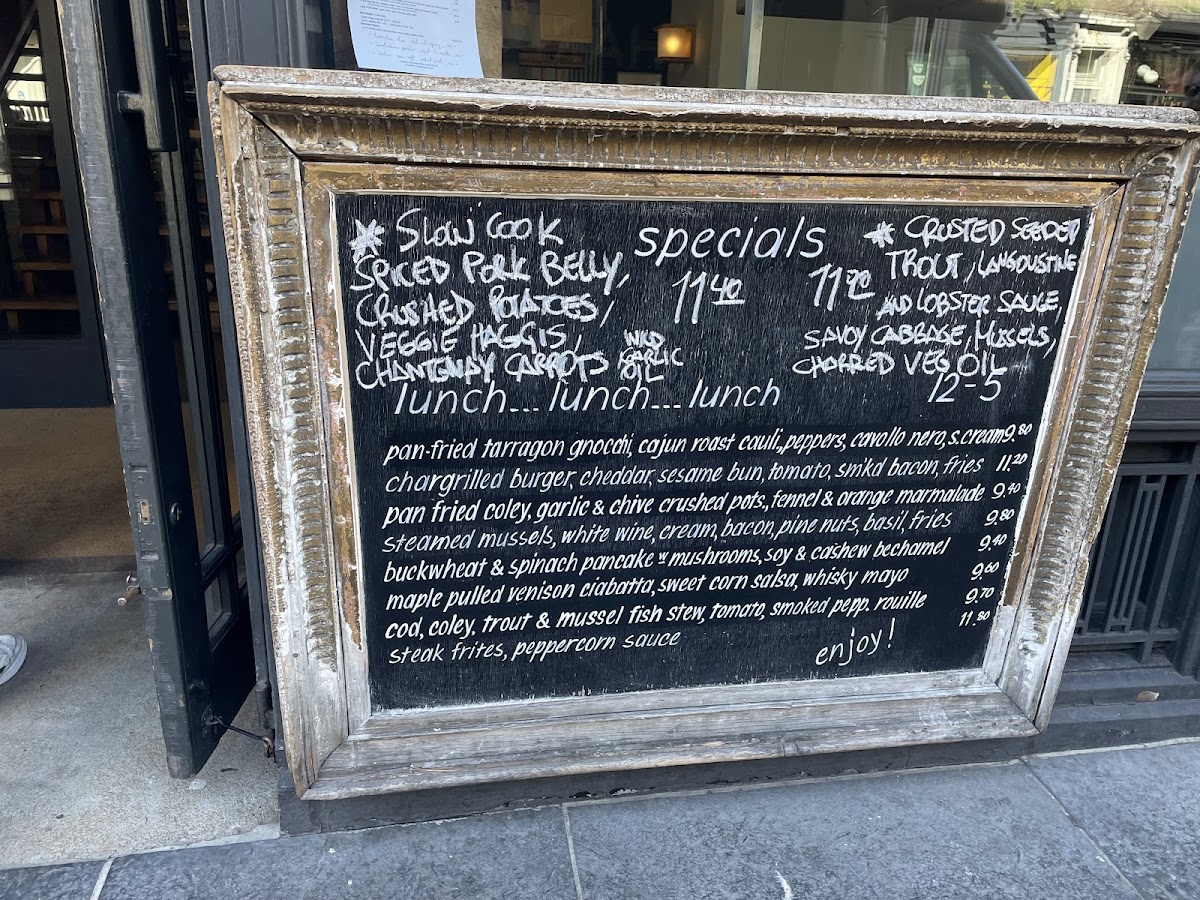 * SLOW COOK
SPICED PORK BELLY,
CRUSHED POTATOES,
VEGGIE HAGGIS,
CHANTENAY CARROTS
WILD
GARLIC
OIL
specials
11 40
11 20
* CRUSTED SEEDED
TROUT, LANGOUSTINE
AND LOBSTER SAUCE,
SAVOY CABBAGE, MUSSELS,
CHARRED VEG, OIL
12-5
lunch... lunch... lunch
pan-fried tarragon gnocchi, cajun roast cauli., peppers, cavollo nero, s.cream 9.80
chargrilled burger, cheddar, sesame bun, tomato, smkd bacon, fries 11.20
pan fried coley, garlic & chive crushed pots, fennel & orange marmalade 9.40
steamed mussels, white wine, cream, bacon, pine nuts, basil, fries 9.80
buckwheat & spinach pancake w mushrooms, soy & cashew bechamel 9.40
maple pulled venison ciabatta, sweet corn salsa, whisky mayo 9.60
cod, coley, trout & mussel fish stew, tomato, smoked pepp. rouille 9.70
steak frites, peppercorn sauce 11.80
enjoy!